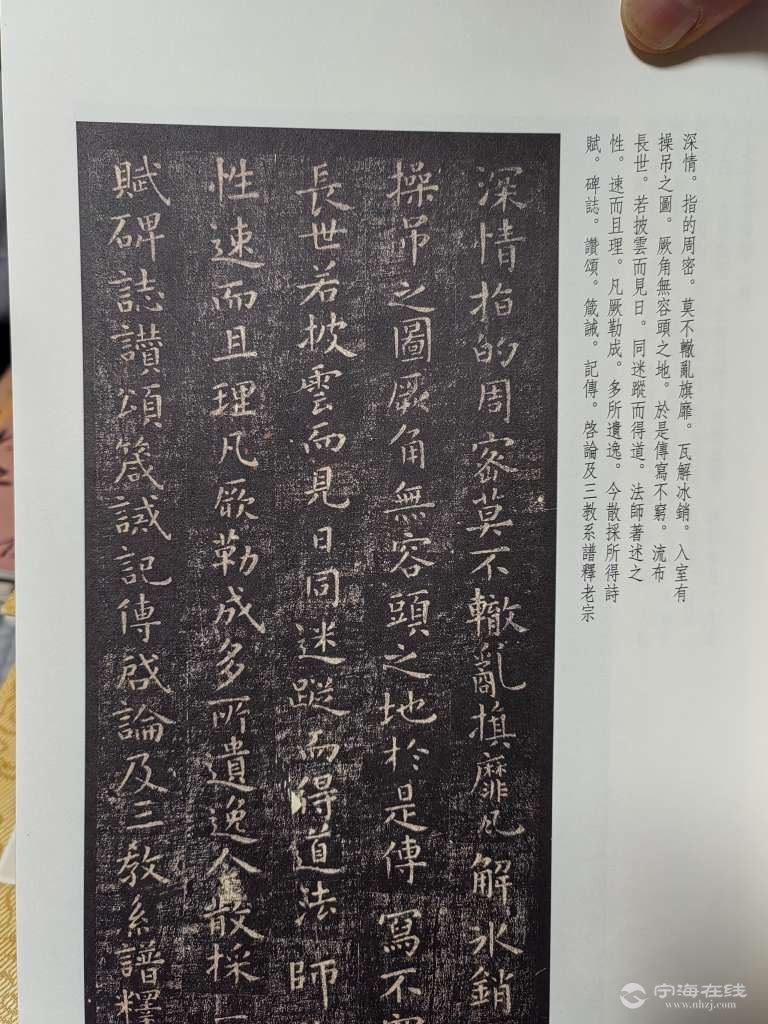 深情。指的周密。莫不轍亂旗靡。瓦解冰銷。入室有
操吊之圖。厥角無容頭之地。於是傳寫不窮。流布
長世。若披雲而見日。同迷蹤而得道。法師著述之
性。速而且理。凡厥勒成。多所遺逸。今散採所得詩
賦。碑誌。讚頌。箴誡。記傳。啓論及三教系譜釋老宗
深情指的周密莫不轍亂旗靡瓦解冰銷
操吊之圖厥角無容頭之地於是傳寫不
長世若披雲而見日同迷蹤而得道法師
性速而且理凡厥勒成多所遺逸今散採
賦碑誌讚頌箴誡記傳啟論及三教系譜釋
宁海在线
www.nhzj.com